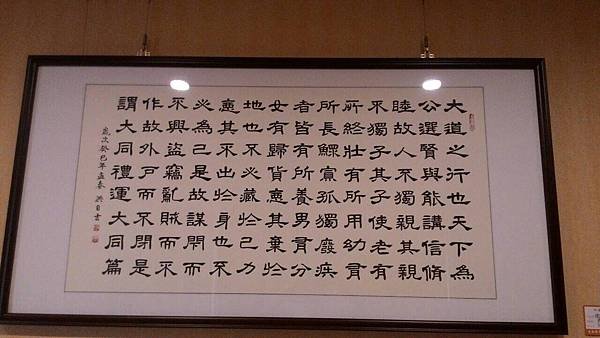 大道之行也天下為
公選賢與能講信脩
睦故人不獨親其親
不獨子其子使老有
所終壯有所用幼有
所長鰥寡孤獨廢疾
者皆有所養男有分
女有歸貨惡其棄於
地也不必藏於己力
惡其不出於身也不
必為己是故謀閉而
不興盜竊亂賊而不
作故外戶而不閉是
謂大同禮運大同篇
歲次癸巳年孟春